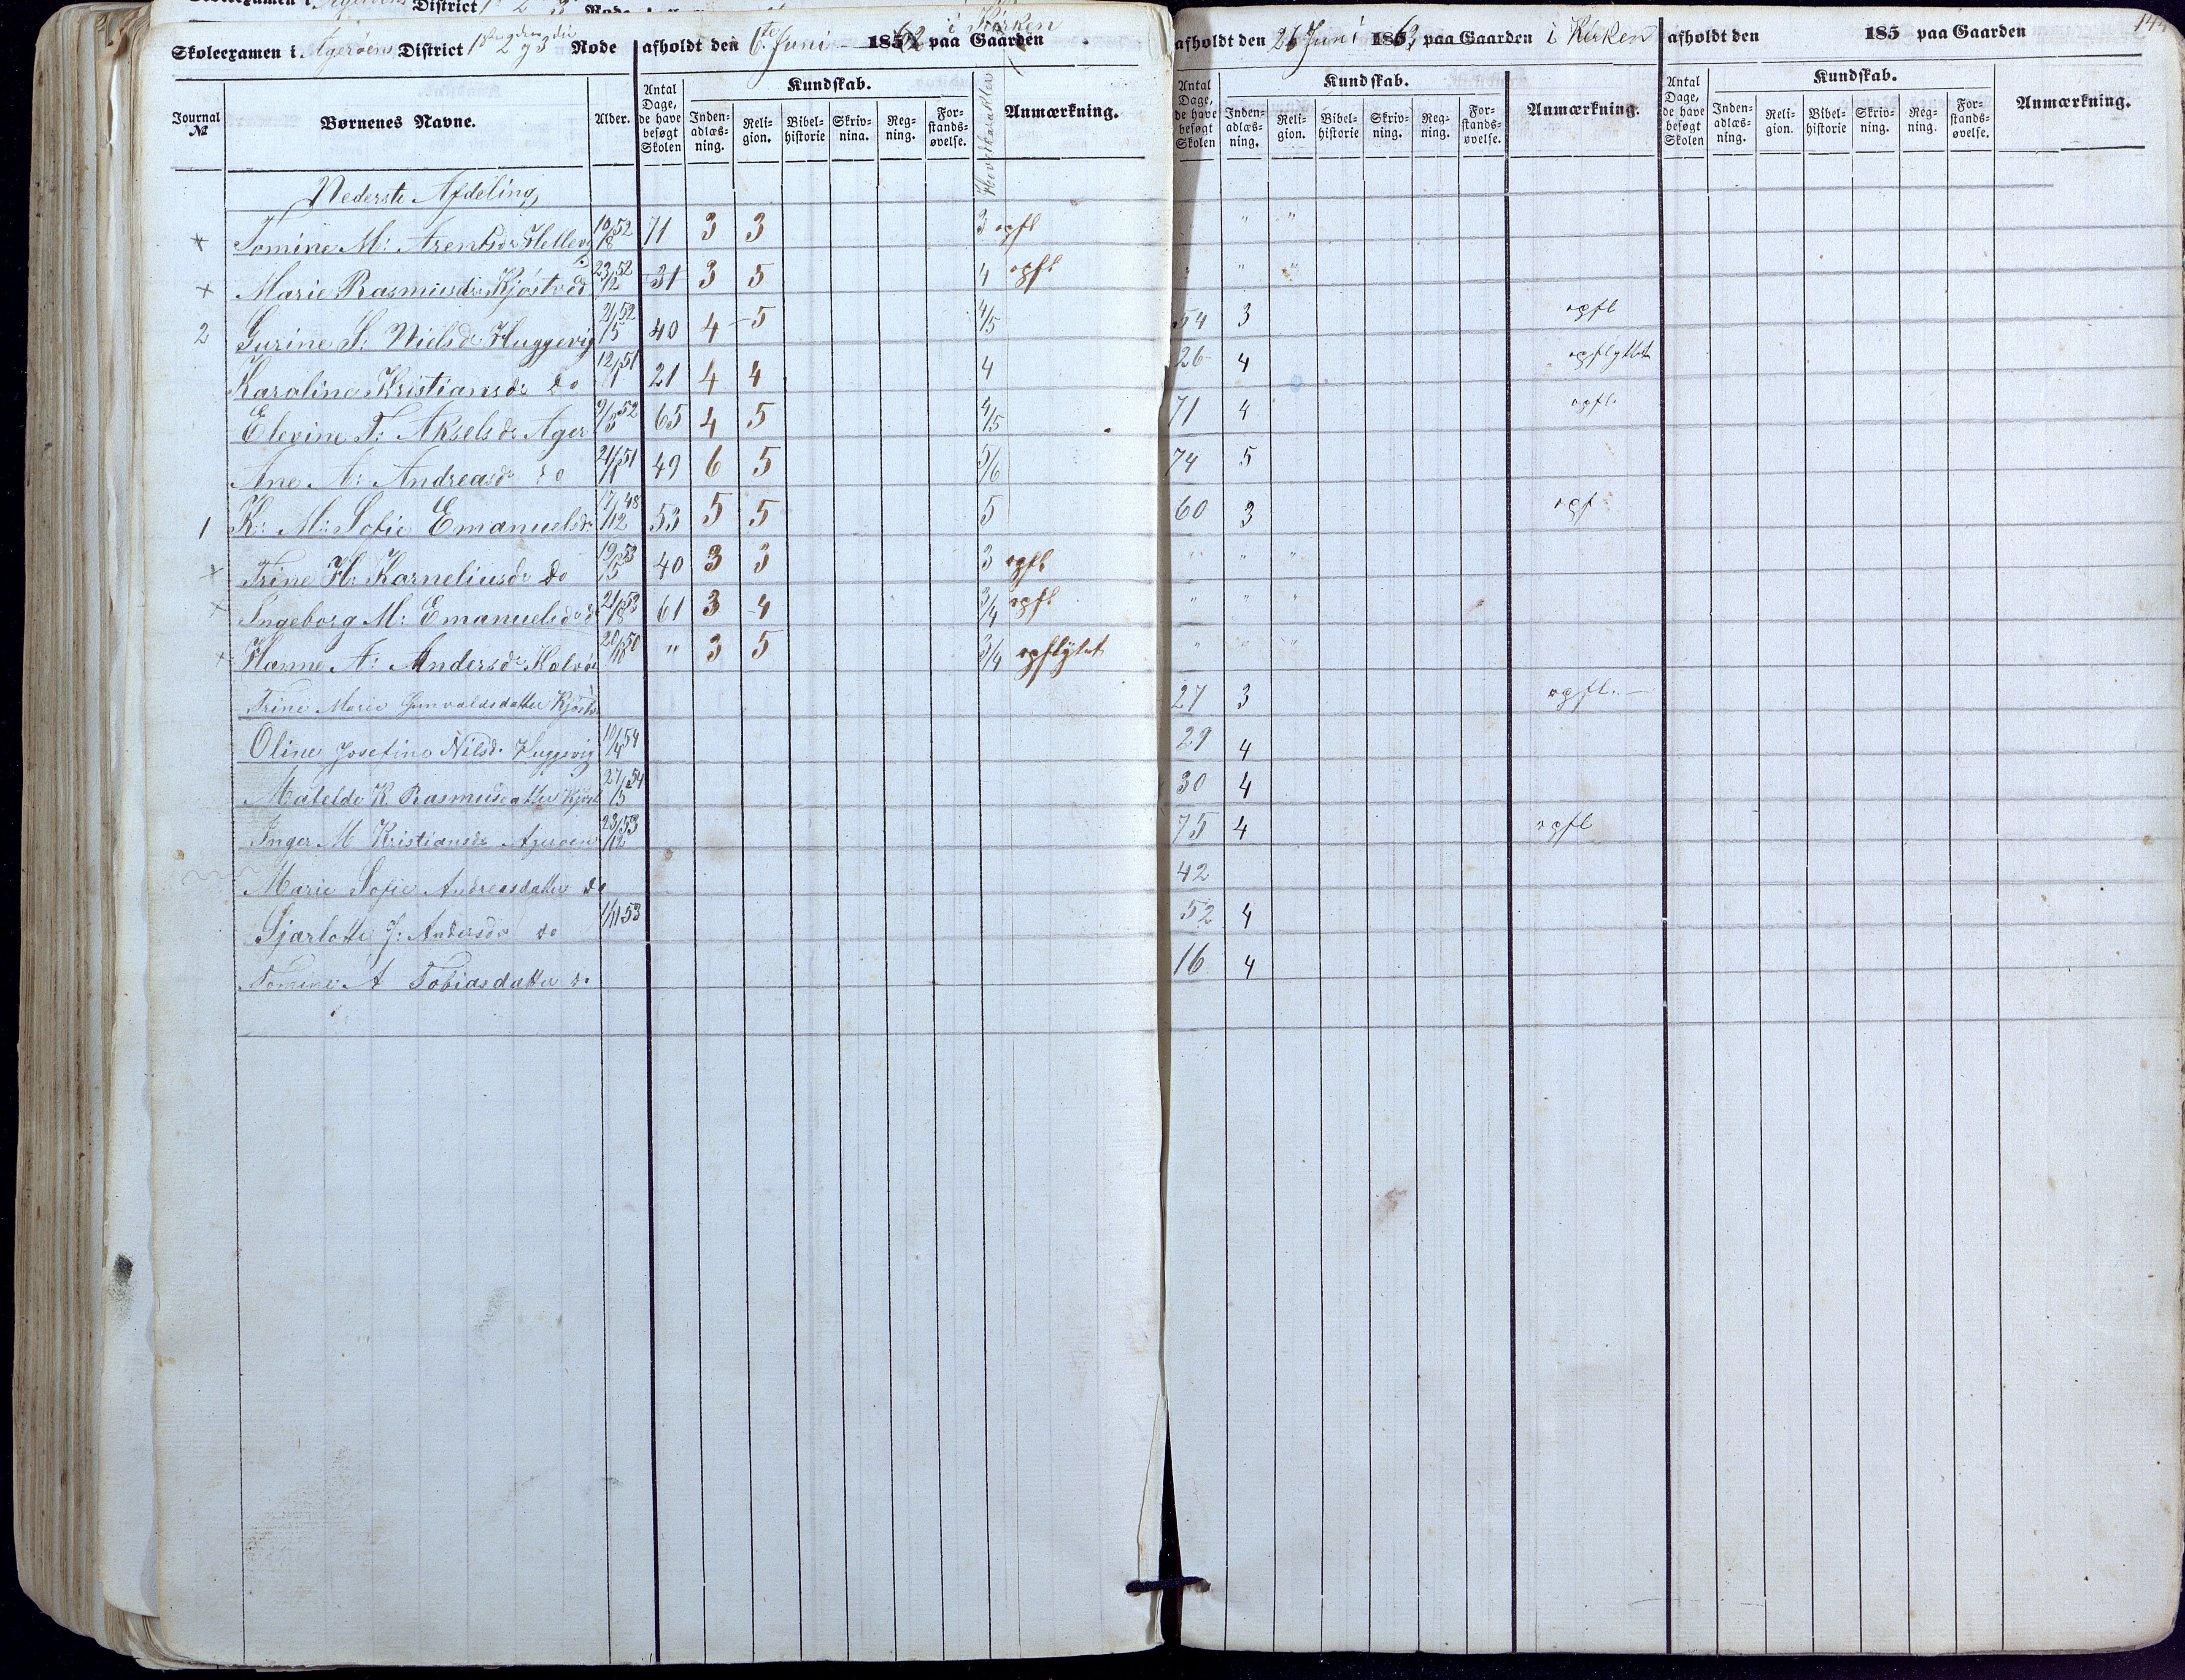 Skoleexamen i Agerøens District 1 2 og 3 Rode afholdt den 6te Juni 1862 paa Gaarden i Kirken
afholdt den 26 Juni 1863 paa Gaarden i Kirken
afholdt den 185 paa Gaarden
144
Journal № Børnenes Navne. Alder. Antal Dage, de have besøgt Skolen Kundskab. Inden-adlæs-ning. Reli-gion. Bibel-historie Skriv-ning. Reg-ning. For-stands-øvelse. Hovedkarakter Anmærkning.
Antal Dage, de have besøgt Skolen Kundskab. Inden-adlæs-ning. Reli-gion. Bibel-historie Skriv-ning. Reg-ning. For-stands-øvelse. Anmærkning.
Antal Dage, de have besøgt Skolen Kundskab. Inden-adlæs-ning. Reli-gion. Bibel-historie Skriv-ning. Reg-ning. For-stands-øvelse. Anmærkning.
Nederste Afdeling,
× Tomine M: Arentsdr Hellevig 10/8 52 71 3 3 3 opfl " "
× Marie Rasmusdr Kjøstved 23/12 52 31 3 5 4 opfl " " "
2 Gurine S: Nielsdr Huggevig 21/5 52 40 4 5 4/5 54 3 opfl
Karaline Kristiansdr do 12/1 51 21 4 4 4 26 4 opflyttet
Elevine T: Akselsdr Ager 9/3 52 65 4 5 4/5 71 4 opfl.
Ane N: Andreasdr do 21/1 51 49 6 5 5/6 74 5
1 K: M: Sofie Emanuelsdr 17/12 48 53 5 5 5 60 3 opf
× Trine H: Korneliusdr do 19/5 53 40 3 3 3 opfl " " "
× Ingeborg M: Emanuelsdr do 21/8 53 61 3 4 3/4 opfl " " "
× Hanne A: Andersdr Kalvø 20/10 50 " 3 5 3/4 opflytet " " "
Trine Marie Gunvaldsdatter Kjøstv 27 3 opfl. —
Oline Josefine Nilsd. Huggevig 10/4 54 29 4
Matelde K. Rasmusdatter Kjøst 27/5 54 30 4
Inger M Kristiansdr Agerøen 23/12 53 75 4 opfl
Marie Sofie Andreasdatter do 42
Sjarlotte J: Andersdr do 1/11 53 52 4
Tomine A Tobiasdatter do 16 4